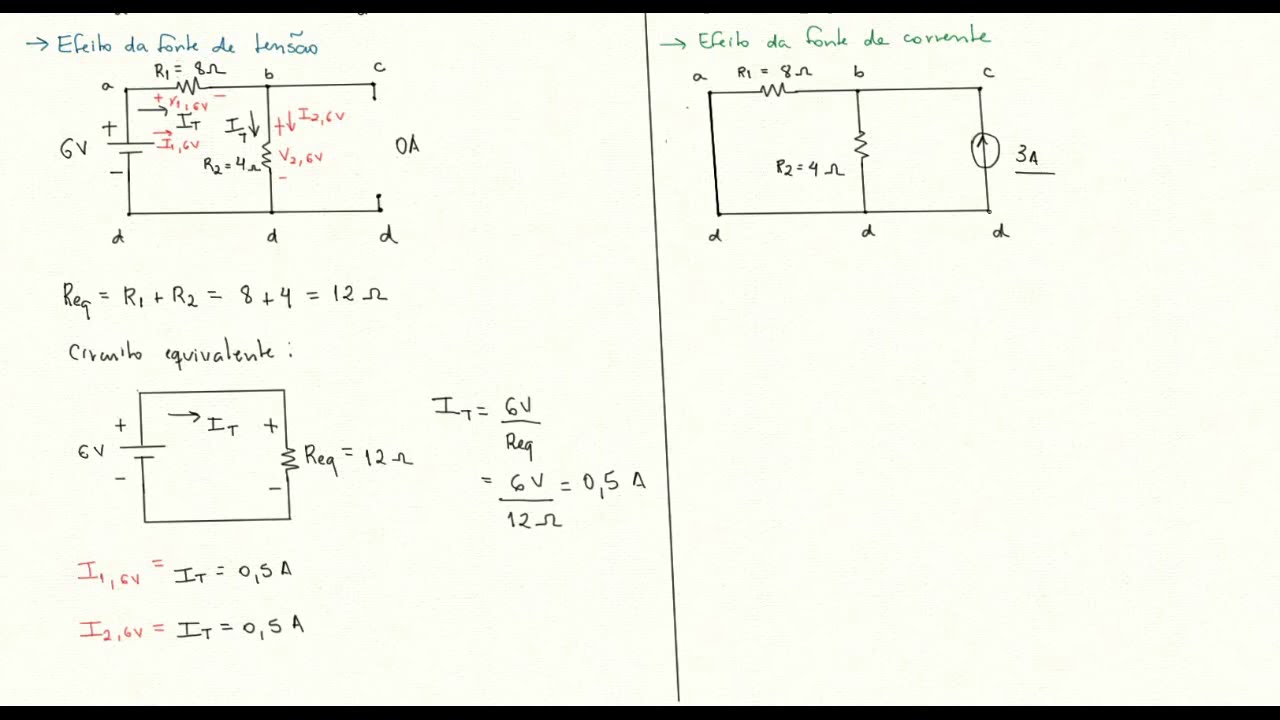 → Efeito da fonte de tensão
R1 = 8Ω
a
b
c
+ V1,6V -
→ IT
→ I1,6V
IT ↓
+ ↓ I2,6V
+
6V
-
R2 = 4Ω
V2,6V
-
0A
d
d
d
Req = R1 + R2 = 8 + 4 = 12 Ω
Circuito equivalente :
+
→ IT
+
6V
Req = 12 Ω
-
-
IT = 6V
Req
= 6V = 0,5 A
12 Ω
I1,6V = IT = 0,5 A
I2,6V = IT = 0,5 A
→ Efeito da fonte de corrente
a
R1 = 8Ω
b
c
R2 = 4 Ω
3A
d
d
d